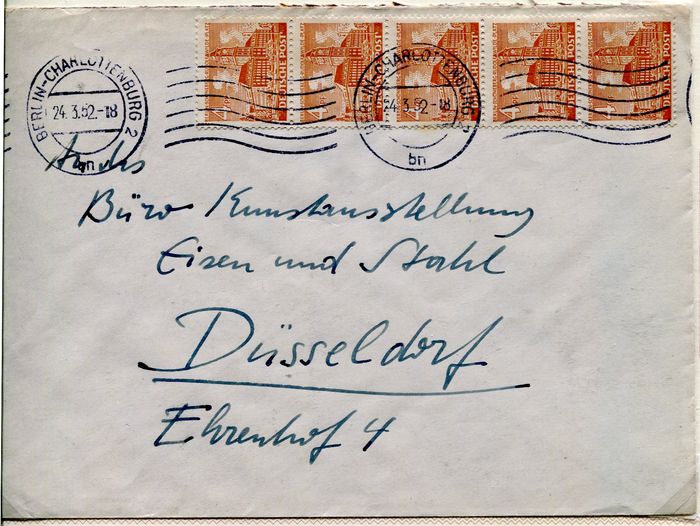 BERLIN-CHARLOTTENBURG 2
24.3.52.-18
bn
BERLIN-CHARLOTTENBURG 2
24.3.52.-18
bn
4 DEUTSCHE POST
4 DEUTSCHE POST
4 DEUTSCHE POST
4 DEUTSCHE POST
4 DEUTSCHE POST
An das
Büro Kunstausstellung
Eisen und Stahl
Düsseldorf
Ehrenhof 4